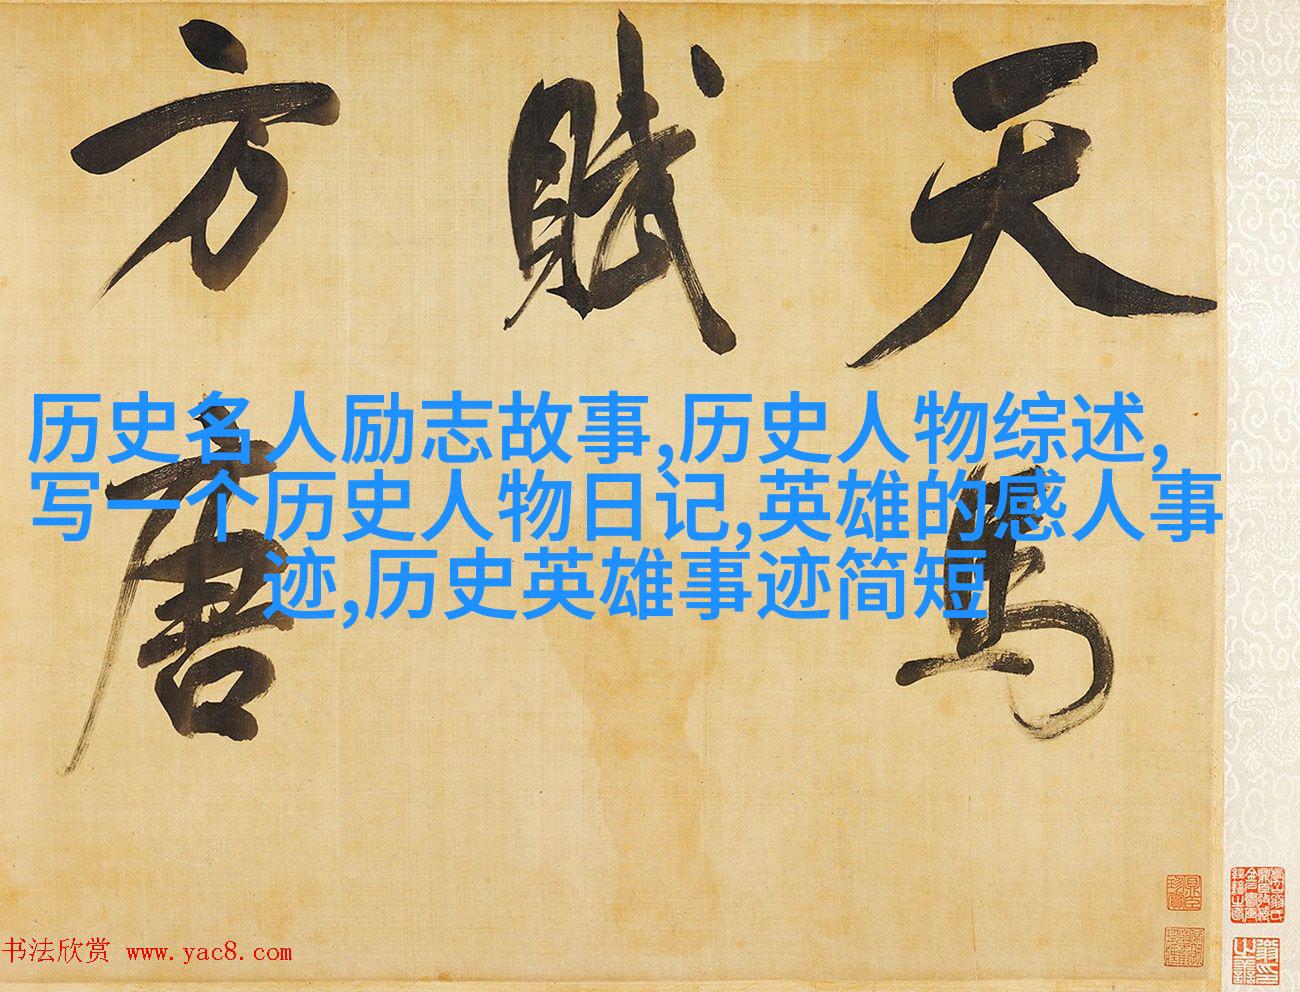 天马
赋
方
唐
历史名人励志故事,历史人物综述,
写一个历史人物日记,英雄的感人事
迹,历史英雄事迹简短
书法欣赏 www.yac8.com